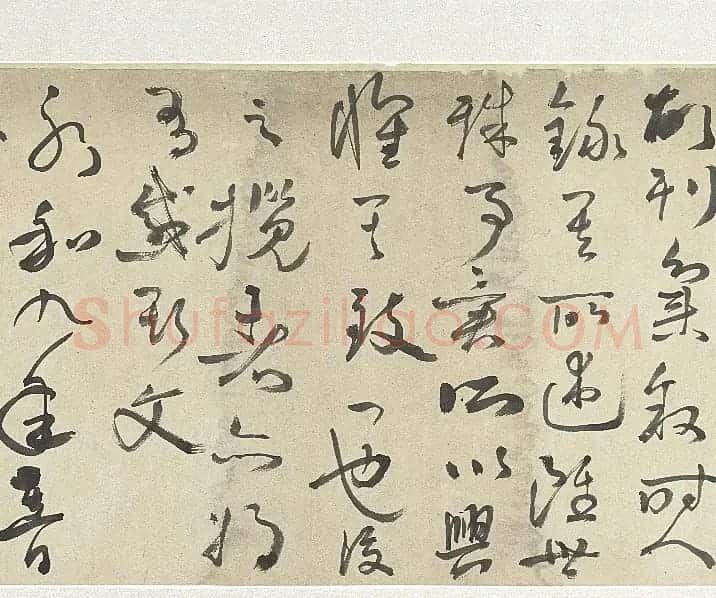 故列叙時人
錄其所述雖世
殊事異所以興
懷其致一也後
之攬者亦將
有感斯文
永和九年
shufaziliao.COM